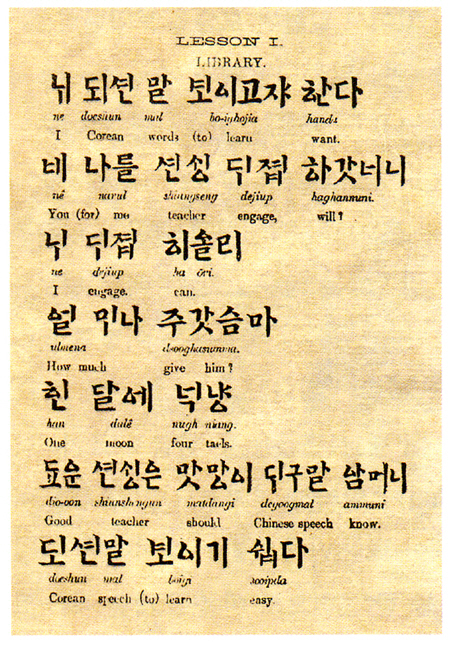 LESSON I.
LIBRARY.
되션 말 보이고쟈 한다
ne doeshun mal bo-ighojia handa
I Corean words (to) learn want.
네 나를 션싱 디졉 하갓너니
nê narul shiangseng dejiup haghannuni.
You (for) me teacher engage, will?
디졉 하올리
ne dejiup ha ôri.
I engage. can.
얼 미나 주갓슴마
ulmena dsooghasumma.
How much give him?
한 달에 넉냥
han dalê nugh niang.
One moon four taels.
됴운 션싱은 맛망이 디구말 암머니
dio-oon shiunshengun matdangi degoogmal ammuni
Good teacher should Chinese speech know.
되션말 보이기 쉽다
doeshun mal boigi sooipda
Corean speech (to) learn easy.